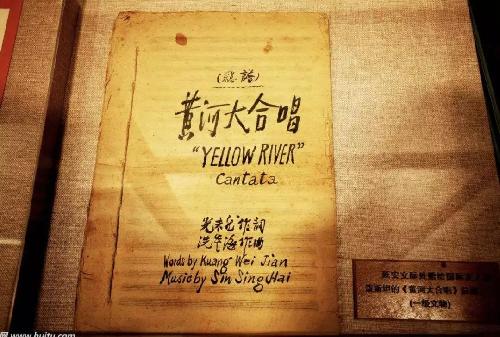 (總譜)
黃河大合唱
"YELLOW RIVER"
Cantata
光未然作詞
洗星海作曲
Words by Kuang Wei Jian
Music by Sin Sing Hai
《黄河大合唱》
(一级文物)
www.huitu.com